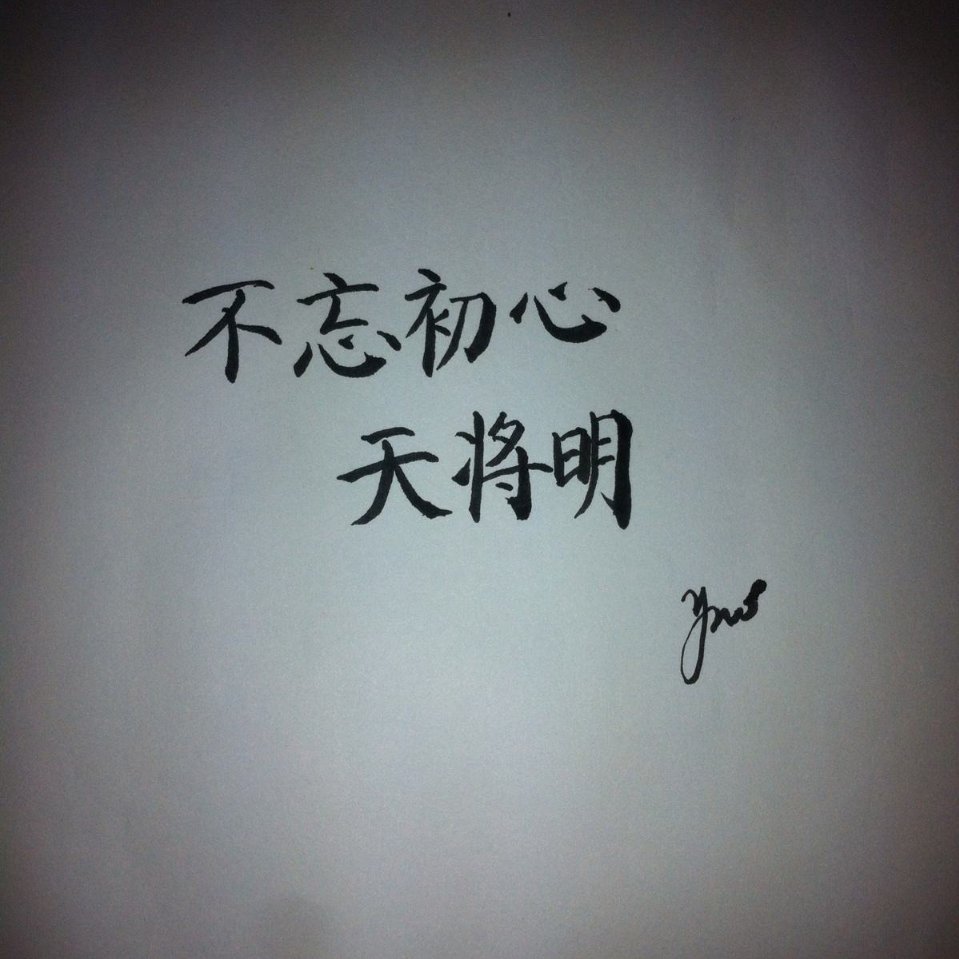 不忘初心
天将明